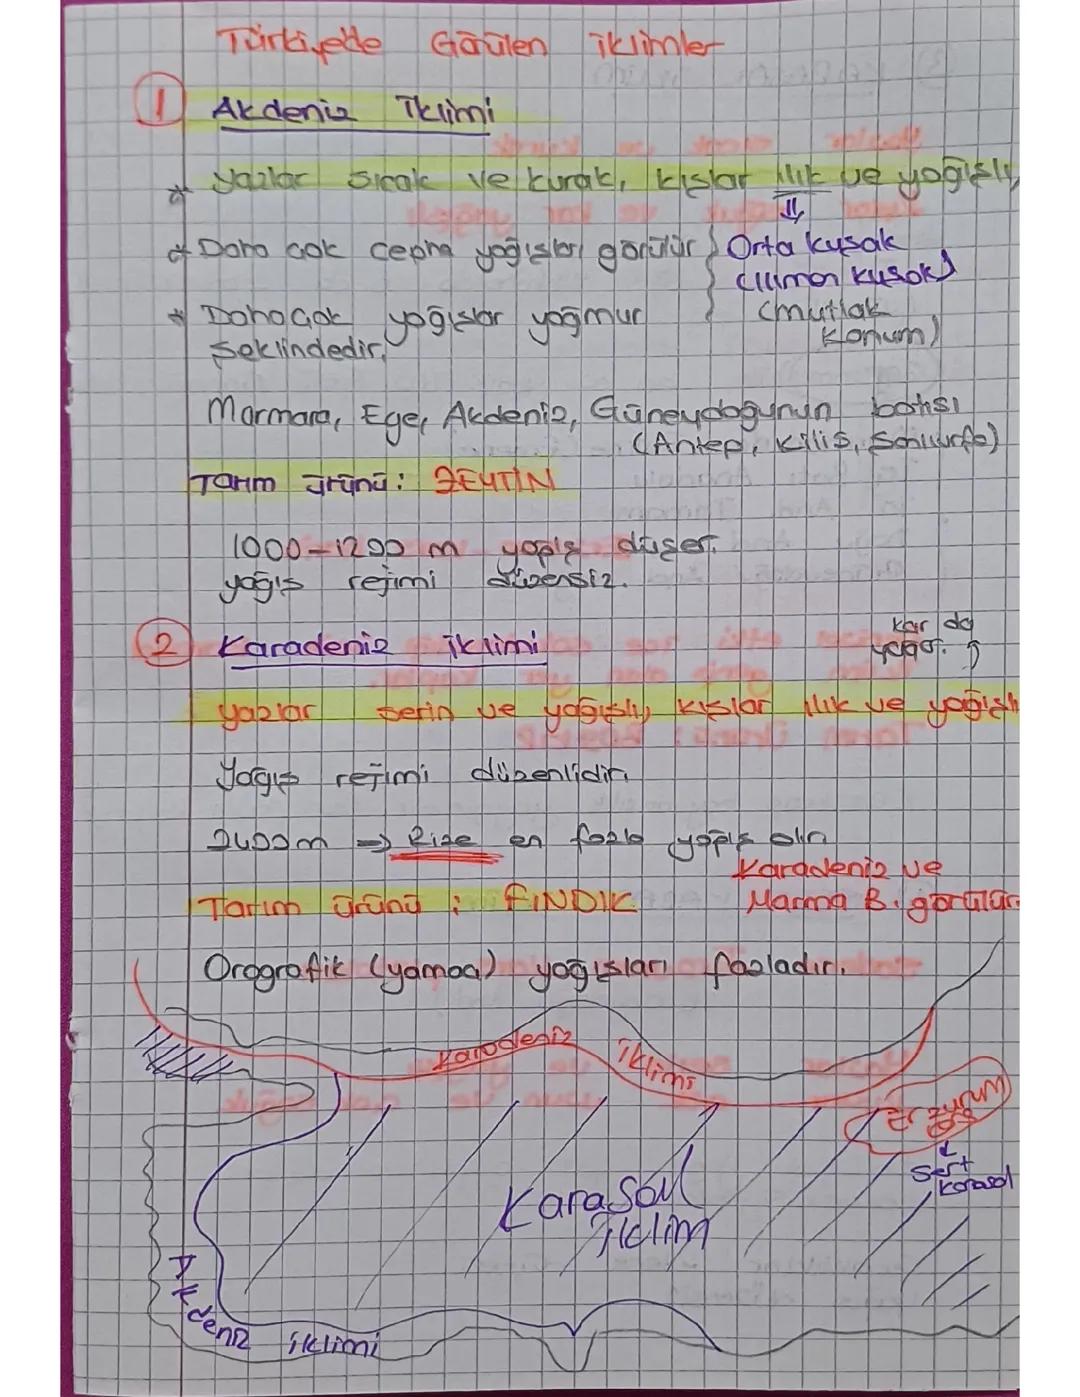 Türkiye'de Görülen İklimler
1 Akdeniz İklimi
* Yazlar sıcak ve kurak, kışlar ılık ve yağışlı
* Daha çok cephe yağışları görülür
Orta kuşak
(ılıman kuşak)
(mutlak
konum)
* Daha çok yağışlar yağmur
şeklindedir.
Marmara, Ege, Akdeniz, Güneydoğunun batısı
(Antep, Kilis, Şanlıurfa)
Tarım ürünü: ZEYTİN
1000-1200 m yağış düşer.
yağış rejimi düzensiz.
2 Karadeniz İklimi
kar da
yağar.
yazlar serin ve yağışlı, kışlar ılık ve yağışlı
Yağış rejimi düzenlidir.
2400m → Rize en fazla yağış alır.
Karadeniz ve
Marma B. görülür.
Tarım ürünü : FINDIK
Orografik (yamaç) yağışları fazladır.
Karadeniz iklimi
Erzurum
Sert
karasal
Karasal
iklim
Akdeniz iklimi